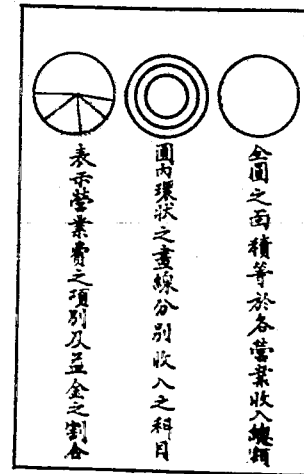 全圓之面積等於各營業收入總額
圓內環狀之畫線分別收入之科目
表示營業費之項別及益金之割合